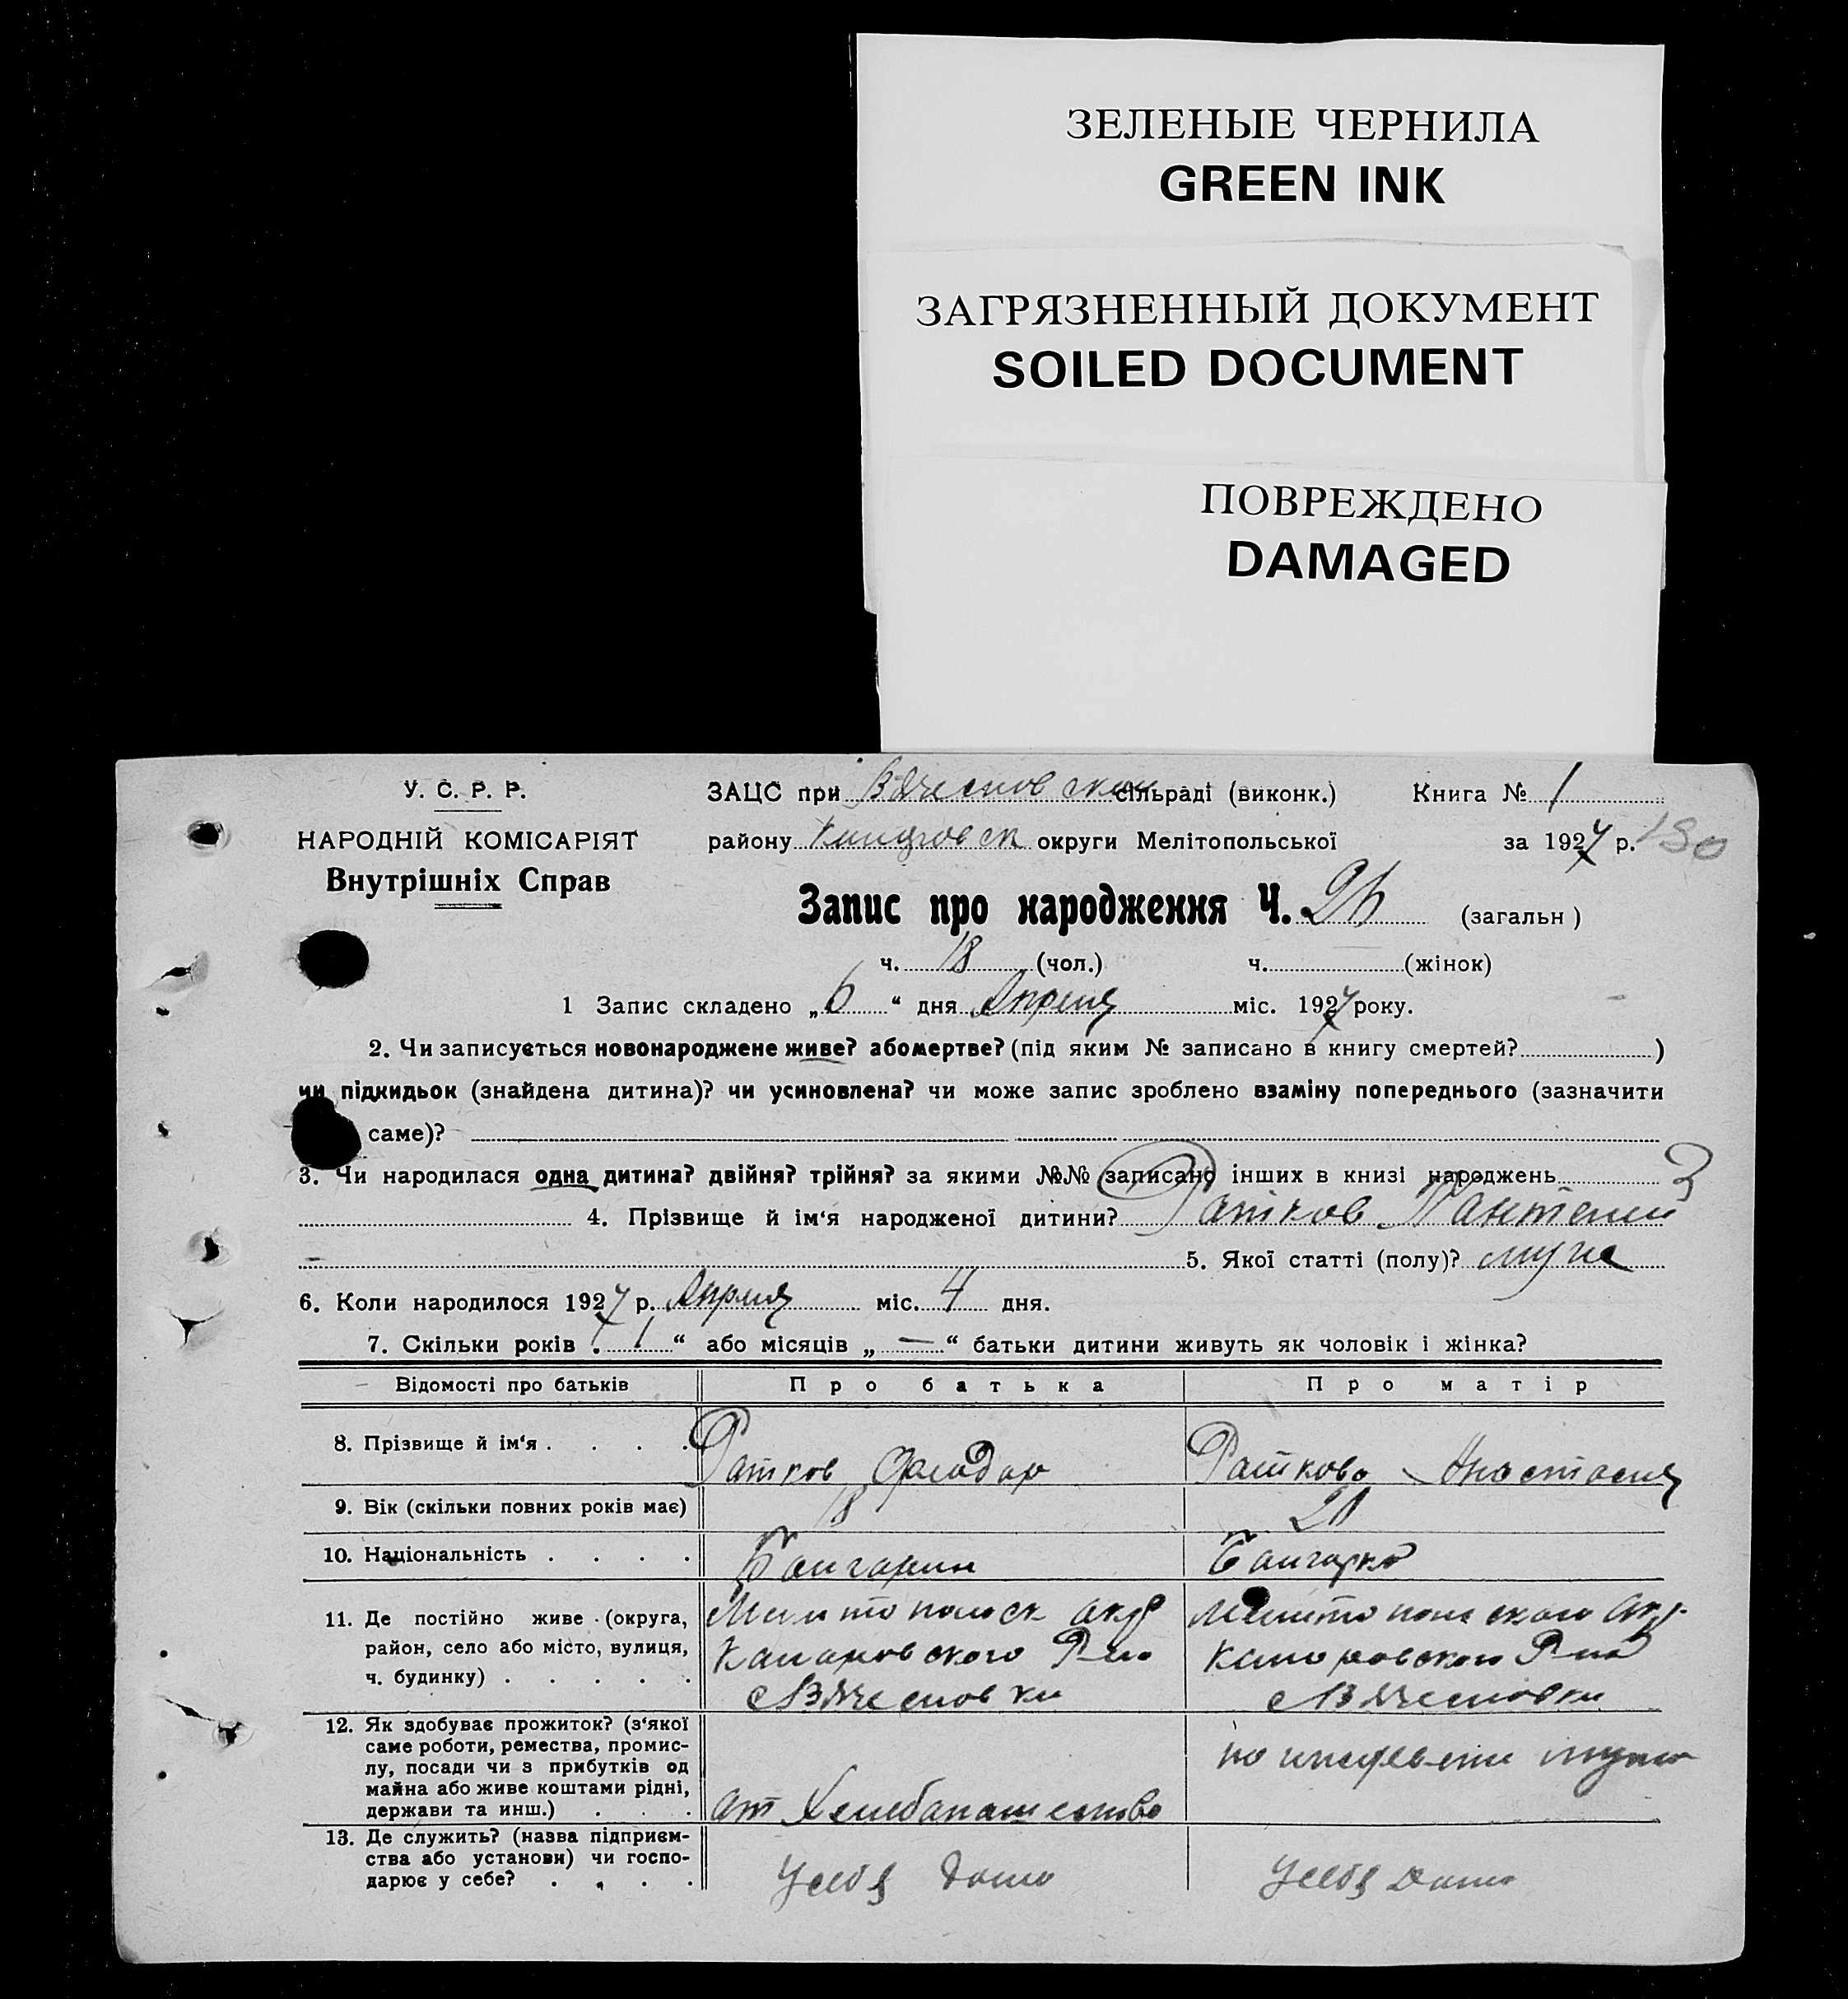 ЗЕЛЕНЫЕ ЧЕРНИЛА
GREEN INK
ЗАГРЯЗНЕННЫЙ ДОКУМЕНТ
SOILED DOCUMENT
ПОВРЕЖДЕНО
DAMAGED
У. С. Р. Р.
НАРОДНІЙ КОМІСАРІЯТ
Внутрішніх Справ
ЗАЦС при сільраді (виконк.) Книга № 1
району округи Мелітопольської за 1927 р. 130
Запис про народження Ч. 26 (загальн)
ч. 18 (чол.) ч. (жінок)
1 Запис складено „6“ дня Апреля міс. 1927 року.
2. Чи записується новонароджене живе? або мертве? (під яким № записано в книгу смертей? )
чи підкидьок (знайдена дитина)? чи усиновлена? чи може запис зроблено взаміну попереднього (зазначити
саме)?
3. Чи народилася одна дитина? двійня? трійня? за якими №№ записано інших в книзі народжень
4. Прізвище й ім‘я народженої дитини? Ратков Пантелей
5. Якої статті (полу)? муж
6. Коли народилося 1927 р. Апреля міс. 4 дня.
7. Скільки років „1“ або місяців „—“ батьки дитини живуть як чоловік і жінка?
Відомості про батьків Про батька Про матір
8. Прізвище й ім‘я . . . . Ратков Фиодор Раткова Анастасия
9. Вік (скільки повних років має) 18 20
10. Національність . . . . Болгарин Болгарка
11. Де постійно живе (округа,
район, село або місто, вулиця,
ч. будинку) . . . . .
Мелитопольск окр
Р-на
с Вячесловки
Мелитопольского окр.
Р-на
с Вячесловки
12. Як здобуває прожиток? (з‘якої
саме роботи, ремества, промис-
лу, посади чи з прибутків од
майна або живе коштами рідні,
держави та инш.) . . .
от Хлебопашество
на мужа
13. Де служить? (назва підприєм-
ства або установи) чи госпо-
дарює у себе? . . . .
У себя дома
У себя дома